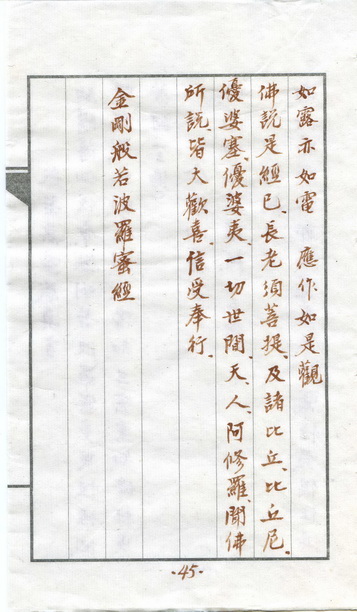 如露亦如電　應作如是觀
佛說是經已、長老須菩提、及諸比丘、比丘尼、
優婆塞、優婆夷、一切世間、天、人、阿修羅、聞佛
所說、皆大歡喜、信受奉行、
金剛般若波羅蜜經
·45·